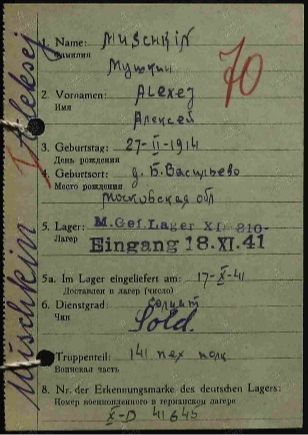 70
Muschkin Aleksej
1. Name: MUSCHKIN
Фамилия Мушкин
2. Vornamen: Alexej
Имя Алексей
3. Geburtstag: 27-II-1914
День рождения
4. Geburtsort: д. Б. Васильево
Место рождения Московская обл
5. Lager: M. Gef. Lager XI 310-
Лагер Eingang 18.XI.41
5a. Im Lager eingeliefert am: 17-X-41
Доставлен в лагер (число)
6. Dienstgrad: солдат
Чин Sold.
7. Truppenteil: 141 пех полк
Воинская часть
8. Nr. der Erkennungsmarke des deutschen Lagers:
Номер военнопленного в германском лагере
X-D 41645